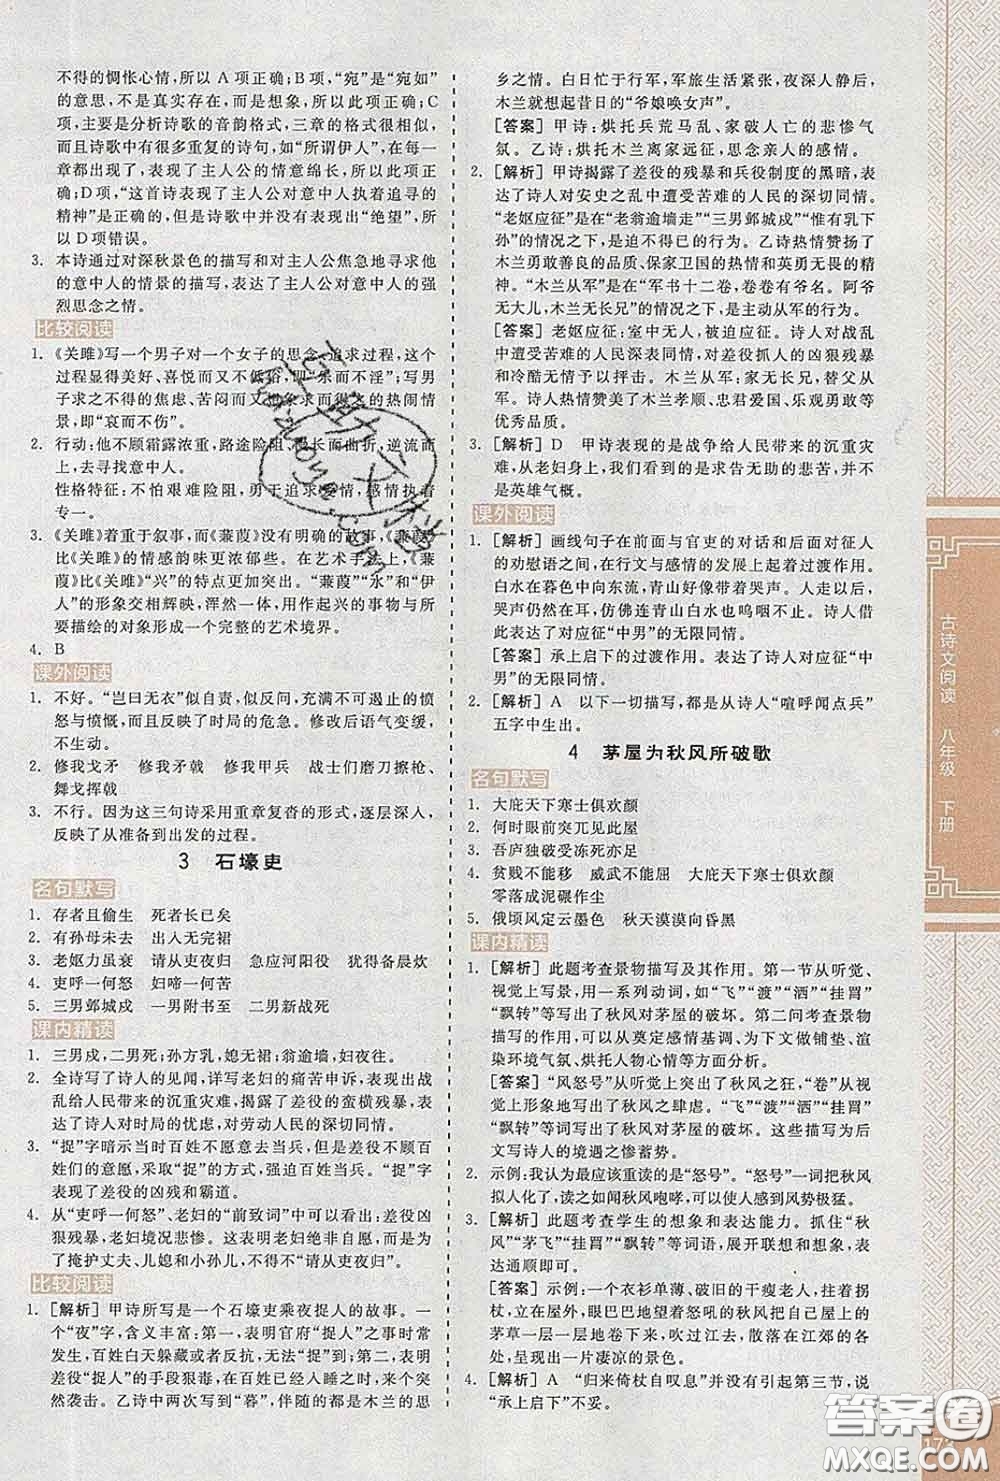 不得的惆怅心情，所以 A 项正确；B 项，“宛”是“宛如”
的意思，不是真实存在，而是想象，所以此项正确；C
项，主要是分析诗歌的音韵格式，三章的格式很相似，
而且诗歌中有很多重复的诗句，如“所谓伊人”，在每一
章都出现了，表现了主人公的情意绵长，所以此项正
确；D项，“这首诗表现了主人公对意中人执着追寻的
精神”是正确的，但是诗歌中并没有表现出“绝望”，所
以 D 项错误。
3. 本诗通过对深秋景色的描写和对主人公焦急地寻求他
的意中人的情景的描写，表达了主人公对意中人的强
烈思念之情。
比较阅读
1. 《关雎》写一个男子对一个女子的思念、追求过程，这个
过程显得美好、喜悦而又不低俗，即“求而不淫”；写男
子求之不得的焦虑、苦闷而又多一份热闹和酣畅的情
景，即“哀而不伤”。
2. 行动：他不顾霜露浓重，路途险阻、漫长而曲折，逆流而上，
去寻找意中人。
性格特征：不怕艰难险阻，勇于追求爱情，感情执着
专一。
3. 《关雎》着重于叙事，而《蒹葭》有意淡化了故事，《蒹葭》
比《关雎》的情感韵味更浓郁些。在艺术手法上，《蒹
葭》比《关雎》“兴”的特点更加突出。“蒹葭”“水”和“伊
人”的形象交相辉映，浑然一体，用作起兴的事物与所
要描绘的对象形成一个完整的艺术境界。
4. B
课外阅读
1. 不好。“岂曰无衣”似自责，似反问，充满不可遏止的愤
怒与愤慨，而且反映了时局的危急。修改后语气变缓，
不生动。
2. 修我戈矛　修我矛戟　修我甲兵　战士们磨刀擦枪、
舞戈挥戟
3. 不行。因为这三句诗采用重章复沓的形式，逐层深入，
反映了从准备到出发的过程。
3　石壕吏
名句默写
1. 存者且偷生　死者长已矣
2. 有孙母未去　出入无完裙
3. 老妪力虽衰　请从吏夜归　急应河阳役　犹得备晨炊
4. 吏呼一何怒　妇啼一何苦
5. 三男邺城戍　一男附书至　二男新战死
课内精读
1. 三男戍，二男死；孙方乳，媳无裙；翁逾墙，妇夜往。
2. 全诗写了诗人的见闻，详写老妇的痛苦申诉，表现出战
乱给人民带来的沉重灾难，揭露了差役的蛮横残暴，表
达了诗人对时局的忧虑，对劳动人民的深切同情。
3. “捉”字暗示当时百姓不愿意去当兵，但是差役不顾百
姓们的意愿，采取“捉”的方式，强迫当兵。“捉”字表现
了差役的凶残和霸道。
4. 从“吏呼一何怒”、老妇的“前致词”中可以看出，差役凶
狠残暴，老妇境况悲惨。这表明老妪非自愿，而是为
了掩护丈夫、儿媳和小孙儿，不得不“请从吏夜归”。
比较阅读
1. [解析] 甲诗所写是一个石壕吏乘夜捉人的故事。一
个“夜”字，含义丰富：第一，表明官府“捉人”的事时常
发生，百姓白天躲藏或者反抗，无法“捉”到；第二，表明
差役“捉人”的手段狠毒，在百姓已经入睡的黑夜，来个
突然袭击。乙诗中两次写到“暮”，伴随的是木兰的思
乡之情。白日忙于行军，军旅生活紧张，夜深人静后，
木兰就想起昔日的“爷娘唤女声”。
[答案] 甲诗：烘托兵荒马乱、家破人亡的悲惨气
氛。乙诗：烘托木兰离家远征，思念亲人的感情。
2. [解析] 甲诗揭露了差役的残暴和兵役制度的黑暗，表
达了诗人对安史之乱中遭受苦难的人民的深切同情。
“老妪应征”是在“老翁逾墙走”“三男邺城戍”“惟有乳下
孙”的情况之下，是迫不得已的行为。乙诗热情赞扬了
木兰勇敢善良的品质、保家卫国的热情和英勇无畏的
精神。“木兰从军”是在“军书十二卷，卷卷有爷名。阿爷
无大儿，木兰无长兄”的情况之下，主动从军的行为。
[答案] 老妪应征：室中无人，被迫应征。诗人对战乱
中遭受苦难的人民深表同情，对差役抓人的凶狠残暴
和冷酷无情给予以抨击。木兰从军：家无长兄，替父从
军。诗人热情赞美了木兰孝顺、忠君爱国、乐观勇敢等
优秀品质。
3. [解析] D　甲诗表现的是战争给人民带来的沉重灾
难，从老妇身上，我们看到的是求告无助的悲苦，并不
是英雄气概。
课外阅读
1. [解析] 画线句子在前面与官吏的对话和后面对征人
的劝慰语之间，在行文与感情的发展上起着过渡作用。
白水在暮色中向东流，青山好像带着哭声。人走以后，
哭声仍然在耳，仿佛连青山白水也呜咽不止。诗人深
刻表达了对应征“中男”的无限同情。
[答案] 承上启下的过渡作用。表达了诗人对应征“中
男”的无限同情。
2. [解析] A　以下一切描写，都是从诗人“喧呼闻点兵”
五字中生出。
4　茅屋为秋风所破歌
名句默写
1. 大庇天下寒士俱欢颜
2. 何时眼前突兀见此屋
3. 吾庐独破受冻死亦足
4. 贫贱不能移　威武不能屈　大庇天下寒士俱欢颜
零落成泥碾作尘
5. 俄顷风定云墨色　秋天漠漠向昏黑
课内精读
1. [解析] 此题考查景物描写及其作用。第一节从听觉、
视觉上写景，用一系列动词，如“飞”“渡”“洒”“挂罥”
“飘转”等写出了秋风对茅屋的破坏。第二问考查景物
描写的作用，可以从奠定感情基调、为下文做铺垫、渲
染环境气氛、烘托人物心情等方面分析。
[答案] “风怒号”从听觉上写出了秋风之狂，“卷”从视
觉上形象地写出了秋风之肆虐。“飞”“渡”“洒”“挂罥”
“飘转”等词写出了秋风对茅屋的破坏。这些描写为下文
后文写诗人的境遇之惨蓄势。
2. 示例：我认为最应该重读的是“怒号”。“怒号”一词把秋风
拟人化了，读之如闻秋风咆哮，可以让人感到风势极猛。
3. [解析] 此题考查学生的想象和表达能力。抓住“秋
风”“茅飞”“挂罥”“飘转”等词，展开联想和想象，表达
通顺即可。
[答案] 示例：一个衣衫单薄、破旧的干瘦老人，拄着拐
杖，立在屋外，眼巴巴地望着怒吼的秋风把自己屋上的
茅草一层一层地卷下来，吹过江去，散落在江郊的各
处，呈现出一片凄凉的景色。
4. [解析] A　“归来倚杖自叹息”并没有引起第三节，说
“承上启下”不妥。
古诗文阅读　八年级　下册
答案圈
MXQE.COM